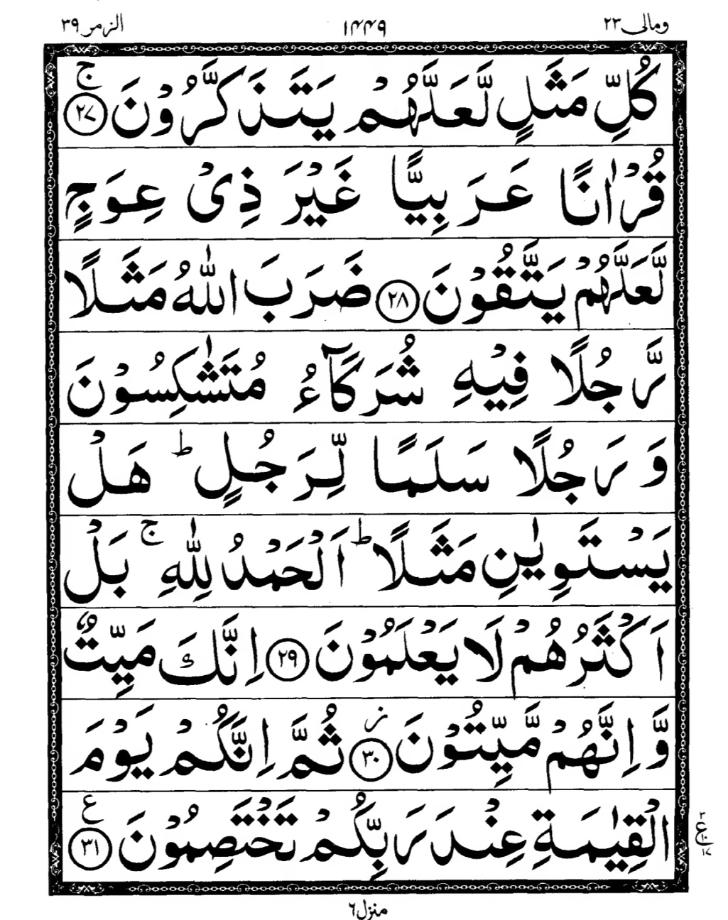 ومالی ٢٣ ١٤٤٩ الزمر ٣٩
كُلِّ مَثَلٍ لَّعَلَّهُمْ يَتَذَكَّرُوْنَ ج ٢٧
قُرْاٰنًا عَرَبِيًّا غَيْرَ ذِىْ عِوَجٍ
لَّعَلَّهُمْ يَتَّقُوْنَ ٢٨ ضَرَبَ اللّٰهُ مَثَلًا
رَّجُلًا فِيْهِ شُرَكَآءُ مُتَشٰكِسُوْنَ
وَرَجُلًا سَلَمًا لِّرَجُلٍ ط هَلْ
يَسْتَوِيٰنِ مَثَلًا ط اَلْحَمْدُ لِلّٰهِ ج بَلْ
اَكْثَرُهُمْ لَا يَعْلَمُوْنَ ٢٩ اِنَّكَ مَيِّتٌ
وَّاِنَّهُمْ مَّيِّتُوْنَ ز ٣٠ ثُمَّ اِنَّكُمْ يَوْمَ
الْقِيٰمَةِ عِنْدَ رَبِّكُمْ تَخْتَصِمُوْنَ ع ٣١
منزل ٦